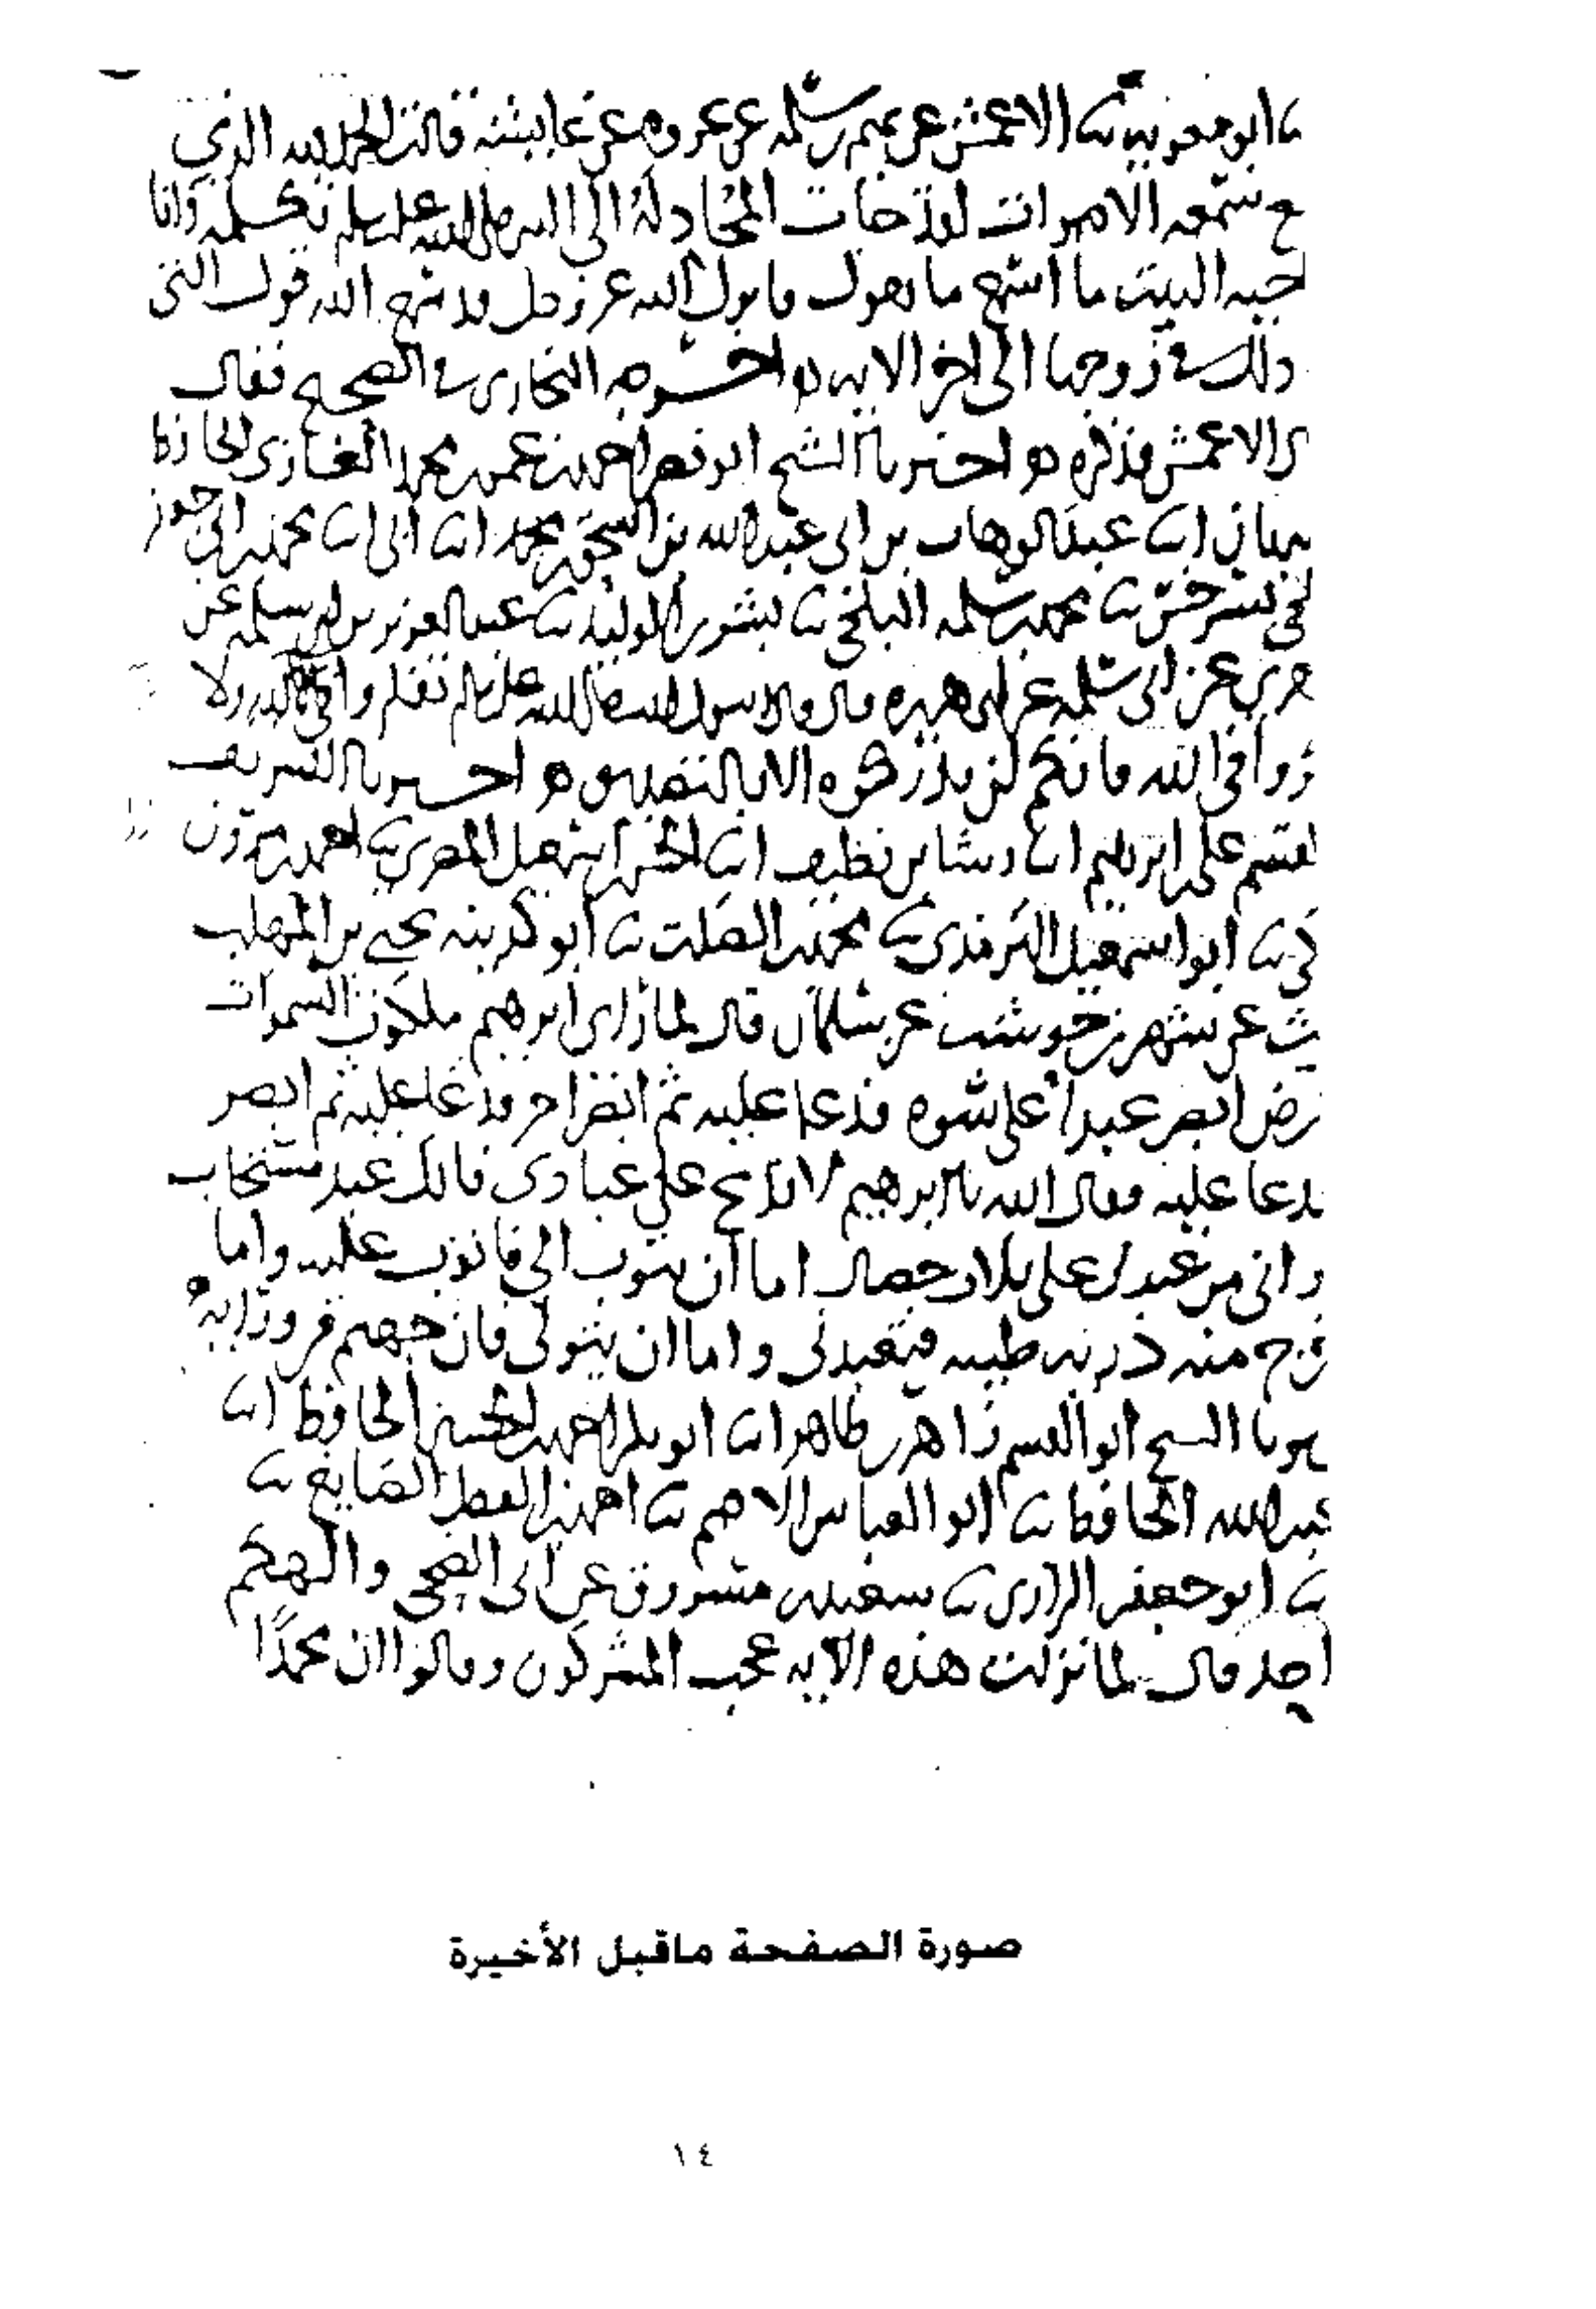 ثنا ابو معوية ثنا الاعمش عن تميم بن سلمة عن عروة عن عايشة قالت الحمد لله الذي
ع سمعه الاصوات لقد جات المجادلة الى النبي صلى الله عليه وسلم تكلمه وانا
حية البيت ما اسمع ما تقول فانزل الله عز وجل قد سمع الله قول التي
دلك في زوجها الى اخر الاية واخرجه البخاري في الصحيح فقال
الاعمش فذكره اخبرنا الشيخ ابو نصر احمد بن عمر بن محمد الغازي الحافظ
بهان انا عبد الوهاب بن ابي عبد الله بن اسحق بن محمد انا ابي انا محمد بن ابي
خي بسرخس ثنا محمد بن سلمة البلخي ثنا بشر بن الوليد ثنا عبد العزيز بن ابي سلمة عن
هري عن ابي سلمة عن ابي هريرة قال قال رسول الله صلى الله عليه وسلم تفكروا في الله ولا
روا في الله فانكم لن تدركوه الا بالتصديق اخبرنا الشريف
لقسم علي بن ابرهيم انا رشا بن نظيف انا الحسن بن اسمعيل المصري ثنا احمد بن مروان
كي ثنا ابو اسمعيل الترمذي ثنا محمد بن الصلت ثنا ابو كدينة يحيى بن المهلب
يث عن شهر بن حوشب عن سلمان قال لما راى ابرهيم ملكوت السموات
رض ابصر عبدا على فدعا عليه ثم ابصر اخر فدعا عليه ثم ابصر
دعا عليه فقال الله يا ابرهيم لا تدع على عبادي فانك عبد مستجاب
واني من عبدي على ثلاث خصال اما ان يتوب الي فاتوب عليه واما
رج منه ذرية طيبة فتعبدني واما ان يتولى فان جهنم من ورايه
برنا الشيخ ابو القسم زاهر بن طاهر انا ابو بكر احمد بن الحسين الحافظ انا
عبد الله الحافظ ثنا ابو العباس الاصم ثنا احمد بن الفضل الصايغ ثنا
ثنا ابو جعفر الرازي ثنا سعيد بن مسروق عن ابي الضحى والهكم
احد قال لما نزلت هذه الاية عجب المشركون وقالوا ان محمدًا
صورة الصفحة ماقبل الأخيرة
١٤